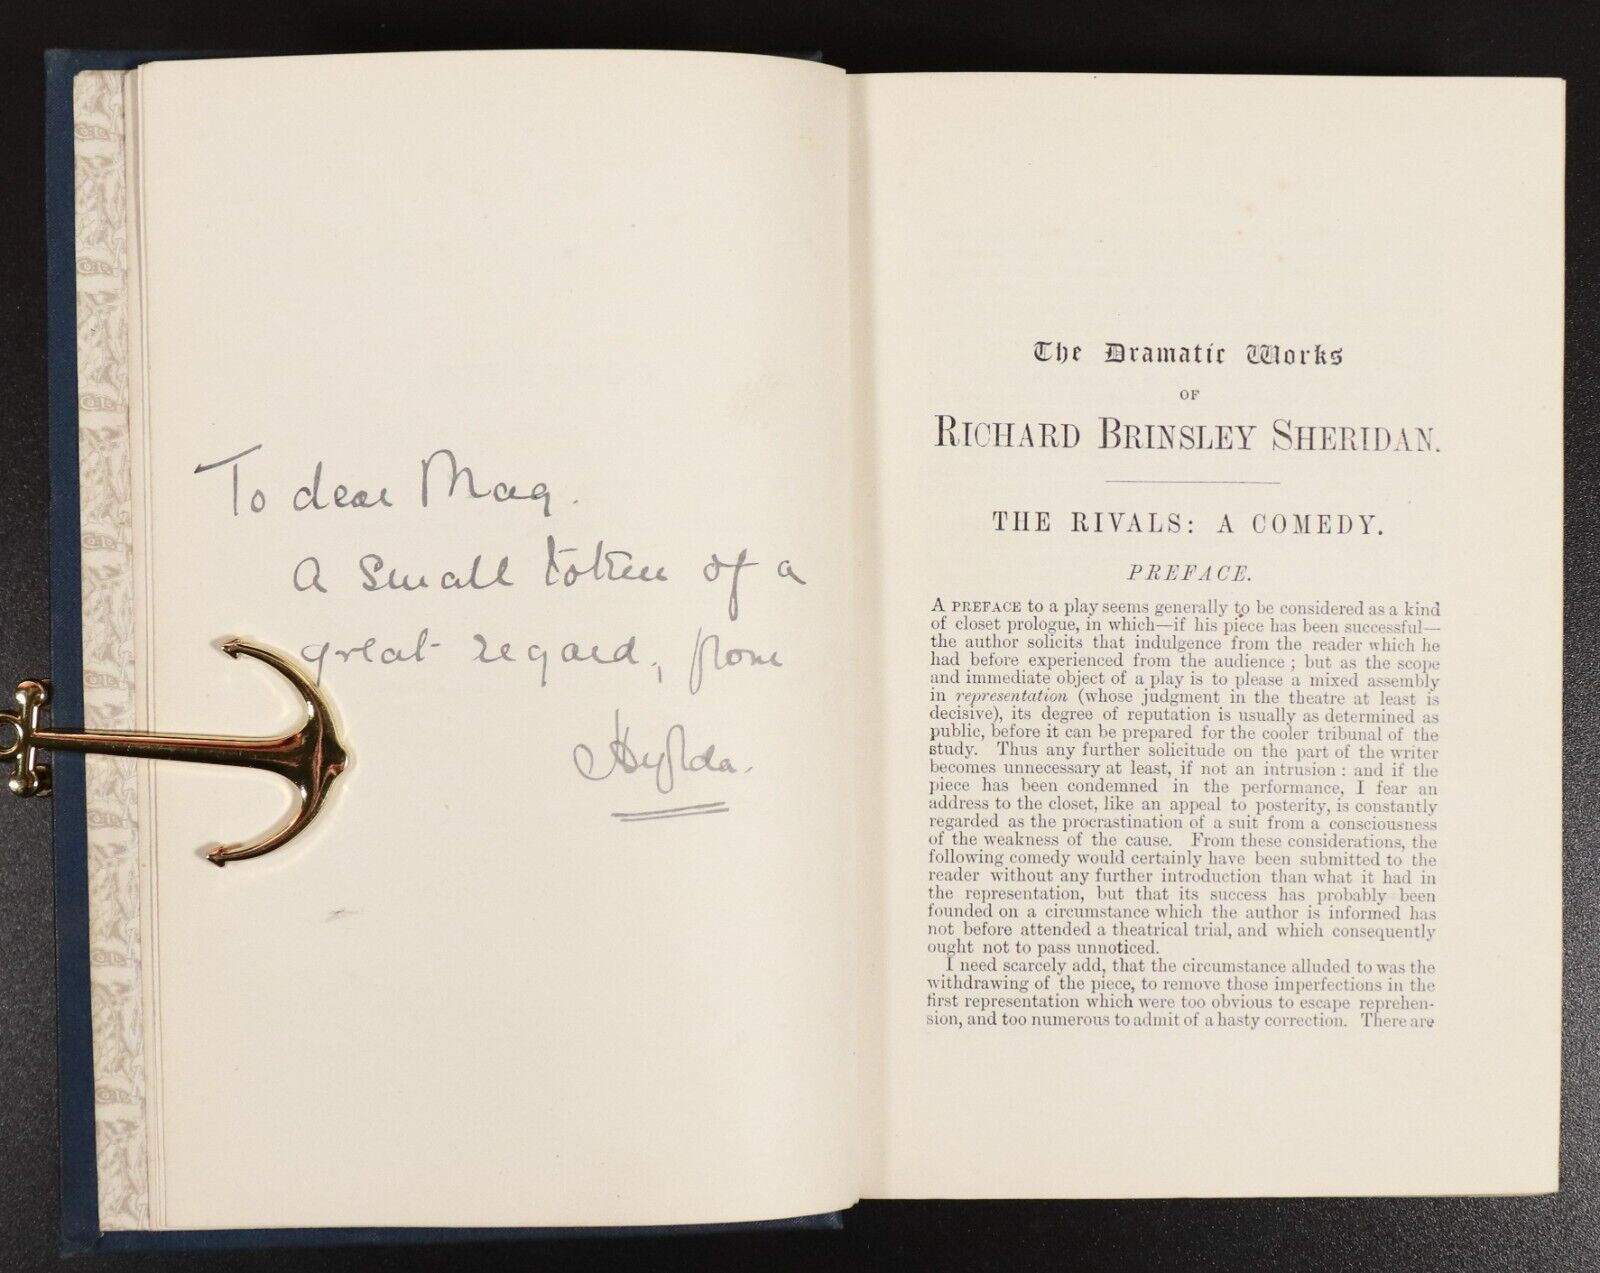 To dear Mag.
A small token of a
great regard, from
Hylda.
The Dramatic Works
OF
RICHARD BRINSLEY SHERIDAN.
THE RIVALS: A COMEDY.
PREFACE.
A PREFACE to a play seems generally to be considered as a kind
of closet prologue, in which—if his piece has been successful—
the author solicits that indulgence from the reader which he
had before experienced from the audience; but as the scope
and immediate object of a play is to please a mixed assembly
in representation (whose judgment in the theatre at least is
decisive), its degree of reputation is usually as determined as
public, before it can be prepared for the cooler tribunal of the
study. Thus any further solicitude on the part of the writer
becomes unnecessary at least, if not an intrusion: and if the
piece has been condemned in the performance, I fear an
address to the closet, like an appeal to posterity, is constantly
regarded as the procrastination of a suit from a consciousness
of the weakness of the cause. From these considerations, the
following comedy would certainly have been submitted to the
reader without any further introduction than what it had in
the representation, but that its success has probably been
founded on a circumstance which the author is informed has
not before attended a theatrical trial, and which consequently
ought not to pass unnoticed.
I need scarcely add, that the circumstance alluded to was the
withdrawing of the piece, to remove those imperfections in the
first representation which were too obvious to escape reprehen-
sion, and too numerous to admit of a hasty correction. There are